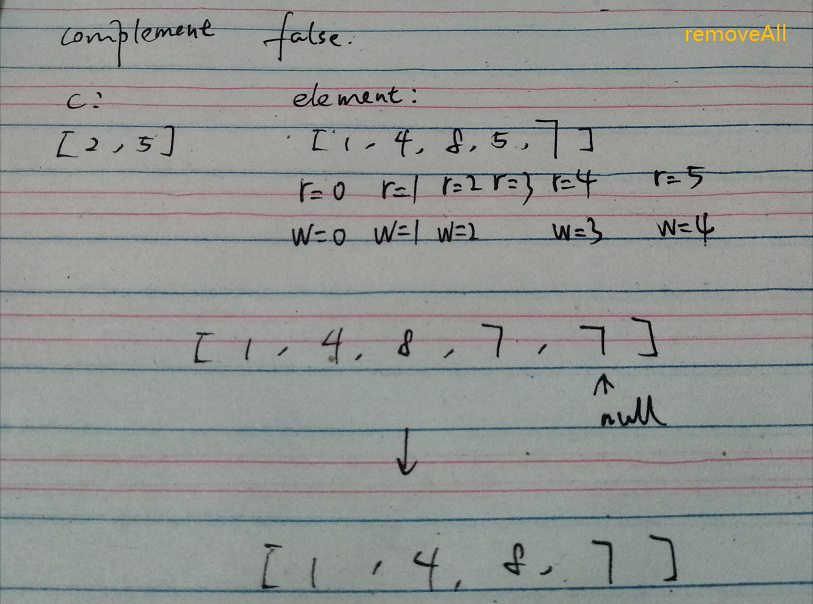 complement false.
removeAll
c: element:
[2, 5] [1, 4, 8, 5, 7]
r=0 r=1 r=2 r=3 r=4 r=5
w=0 w=1 w=2 w=3 w=4
[1, 4, 8, 7, 7]
↑
null
↓
[1, 4, 8, 7]